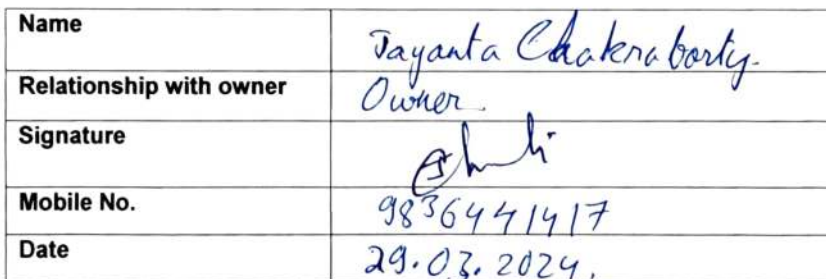 Name Jayanta Chakraborty.
Relationship with owner Owner
Signature
Mobile No. 9836441417
Date 29.03.2024.